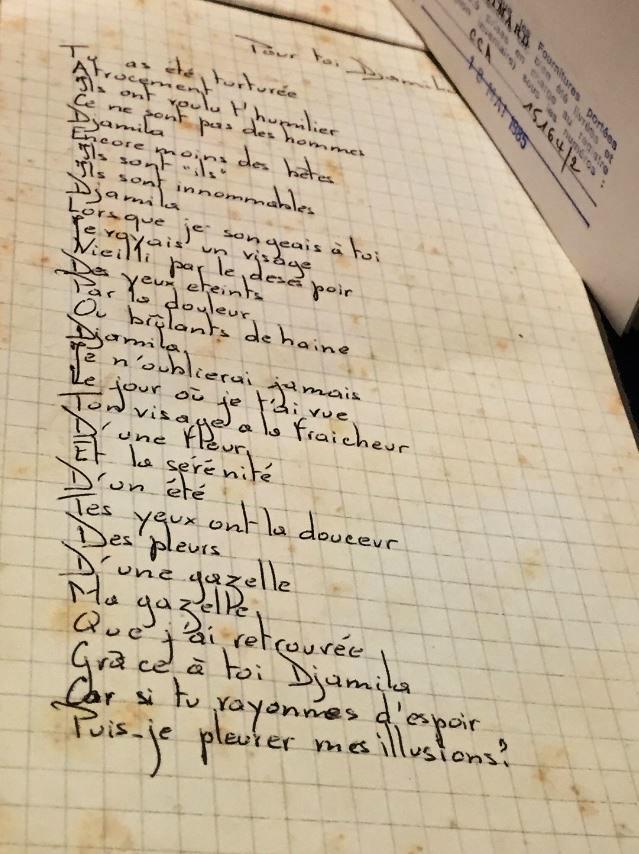 Pour toi Djamila
Tu as été turturée
Atrocement
Ils ont voulu t'humilier
Ce ne sont pas des hommes
Djamila
Encore moins des bêtes
Ils sont "ils"
Ils sont innommables
Djamila
Lorsque je songeais à toi
Je voyais un visage
Vieilli par le desespoir
Des yeux eteints
Par la douleur
Ou brûlants de haine
Djamila,
Je n'oublierai jamais
Le jour où je t'ai vue
Ton visage a la fraicheur
D'une fleur,
Et la sérénité
D'un été
Tes yeux ont la douceur
Des pleurs
D'une gazelle
Ma gazelle,
Que j'ai retrouvée
Grâce à toi Djamila
Car si tu rayonnes d'espoir
Puis-je pleurer mes illusions?
Fournitures portées
été livrées et
au registre
numéros :
CCA 15164/2
18 MAI 1985